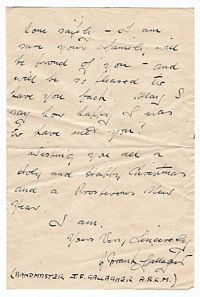 home safely - I am
sure your family will
be proud of you - and
will be so pleased to
have you back. May I
say how happy I was
to have met you?
Wishing you all a
Holy and Happy Christmas
and a Prosperous New
Year.
I am
Yours Very Sincerely
Gallagher
(BANDMASTER J.F. GALLAGHER A.R.C.M.)